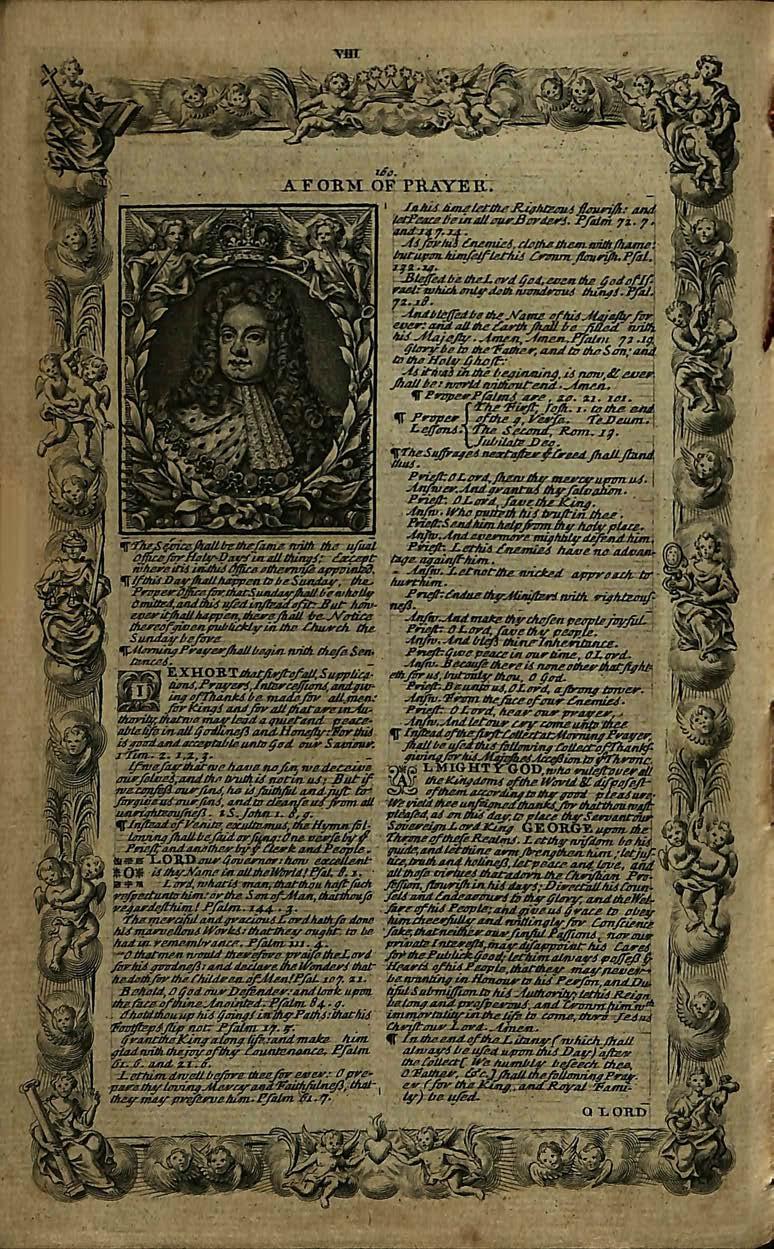 VIII
160.
A FORM OF PRAYER.
¶ The Service shall be the same with the usual
Office for Holy-Days in all things; Except
where it is in this Office otherwise appointed.
¶ If this Day shall happen to be Sunday, the
Proper Office for that Sunday shall be wholly
omitted, and this used instead of it: But how-
ever it shall happen, there shall be Notice
thereof given publickly in the Church the
Sunday before
¶ Morning Prayer shall begin with these Sen-
tences.
I EXHORT that first of all, Supplica-
tions, Prayers, Intercessions, and giv-
ing of Thanks be made for all men:
for Kings and for all that are in Au-
thority, that we may lead a quiet and peace-
able life in all Godliness and Honesty: For this
is good and acceptable unto God our Saviour.
1 Tim. 2. 1, 2, 3.
If we say that we have no sin, we deceive
our selves, and the truth is not in us: But if
we confess our sins, he is faithful and just to
forgive us our sins, and to cleanse us from all
unrighteousness. 1 S. John 1. 8, 9.
¶ Instead of Venite exultemus, the Hymn fol-
lowing shall be said or sung: One verse by yͤ
Priest and another by yͤ Clerk and People.
O LORD our Governor: how excellent
is thy Name in all the World! Psal. 8. 1.
Lord, what is man, that thou hast such
respect unto him: or the Son of Man, that thou so
regardest him! Psalm. 144. 3.
The merciful and gracious Lord hath so done
his marvellous Works: that they ought to be
had in remembrance. Psalm 111. 4.
O that men would therefore praise the Lord
for his goodness: and declare the Wonders that
he doth for the Children of Men! Psal 107. 21.
Behold, O God our Defender: and look upon
the face of thine Anointed. Psalm 84. 9.
O hold thou up his Goings in thy Paths: that his
Footsteps slip not. Psalm 17. 5.
Grant the King a long life: and make him
glad with the joy of thy Countenance. Psalm
61. 6. and 21. 6.
Let him dwell before thee for ever: O pre-
pare thy loving Mercy and Faithfulness, that
they may preserve him. Psalm 61. 7.
In his time let the Righteous flourish: and
let Peace be in all our Borders. Psalm 72. 7.
and 147. 14.
As for his Enemies, clothe them with shame:
but upon himself let his Crown flourish. Psal.
132. 19.
Blessed be the Lord God, even the God of Is-
rael: which only doth wondrous things. Psal.
72. 18.
And blessed be the Name of his Majesty for
ever: and all the Earth shall be filled with
his Majesty. Amen, Amen. Psalm 72. 19.
Glory be to the Father, and to the Son; and
to the Holy Ghost:
As it was in the beginning, is now, & ever
shall be: world without end. Amen.
¶ Proper Psalms are, 20. 21. 101.
¶ Proper Lessons.
The First, Josh. 1. to the end
of the 9. Verse. Te Deum.
The Second, Rom. 13.
Jubilate Deo.
¶ The Suffrages next after yͤ Creed shall stand
thus.
Priest. O Lord, shew thy mercy upon us.
Answer. And grant us thy salvation.
Priest. O Lord, save the King.
Answ. Who putteth his trust in thee.
Priest. Send him help from thy holy place.
Answ. And evermore mightily defend him.
Priest. Let his Enemies have no advan-
tage against him.
Answ. Let not the wicked approach to
hurt him.
Priest. Endue thy Ministers with righteous-
ness.
Answ. And make thy chosen people joyful.
Priest. O Lord, save thy people.
Answ. And bless thine Inheritance.
Priest. Give peace in our time, O Lord.
Answ. Because there is none other that fight-
eth for us, but only thou, O God.
Priest. Be unto us, O Lord, a strong tower.
Answ. From the face of our Enemies.
Priest. O Lord, hear our prayer.
Answ. And let our cry come unto thee.
¶ Instead of the first Collect at Morning Prayer,
shall be used this following Collect of Thanks-
giving for his Majesties Accession to yͤ Throne.
ALMIGHTY GOD, who rulest over all
the Kingdoms of the World & disposest
of them according to thy good pleasure:
We yield thee unfeigned thanks, for that thou wast
pleased, as on this day, to place thy Servant our
Sovereign Lord King GEORGE upon the
Throne of these Realms. Let thy wisdom be his
guide, and let thine arm strengthen him; let jus-
tice, truth and holiness, let peace and love, and
all those virtues that adorn the Christian Pro-
fession, flourish in his days; Direct all his Coun-
sels and Endeavours to thy Glory, and the Wel-
fare of his People; and give us Grace to obey
him cheerfully and willingly for Conscience
sake, that neither our sinful Passions, nor our
private Interests, may disappoint his Cares
for the Publick Good; let him always possess yͤ
Hearts of his People, that they may never
be wanting in Honour to his Person, and Du-
tiful Submission to his Authority; let his Reign
be long and prosperous, and Crown him wth
immortality in the life to come, thro' Jesus
Christ our Lord. Amen.
¶ In the end of the Litany (which shall
always be used upon this Day) after
the Collect (We humbly beseech thee,
O Father, &c.) shall the following Pray-
er (for the King, and Royal Fami-
ly) be used.
O LORD